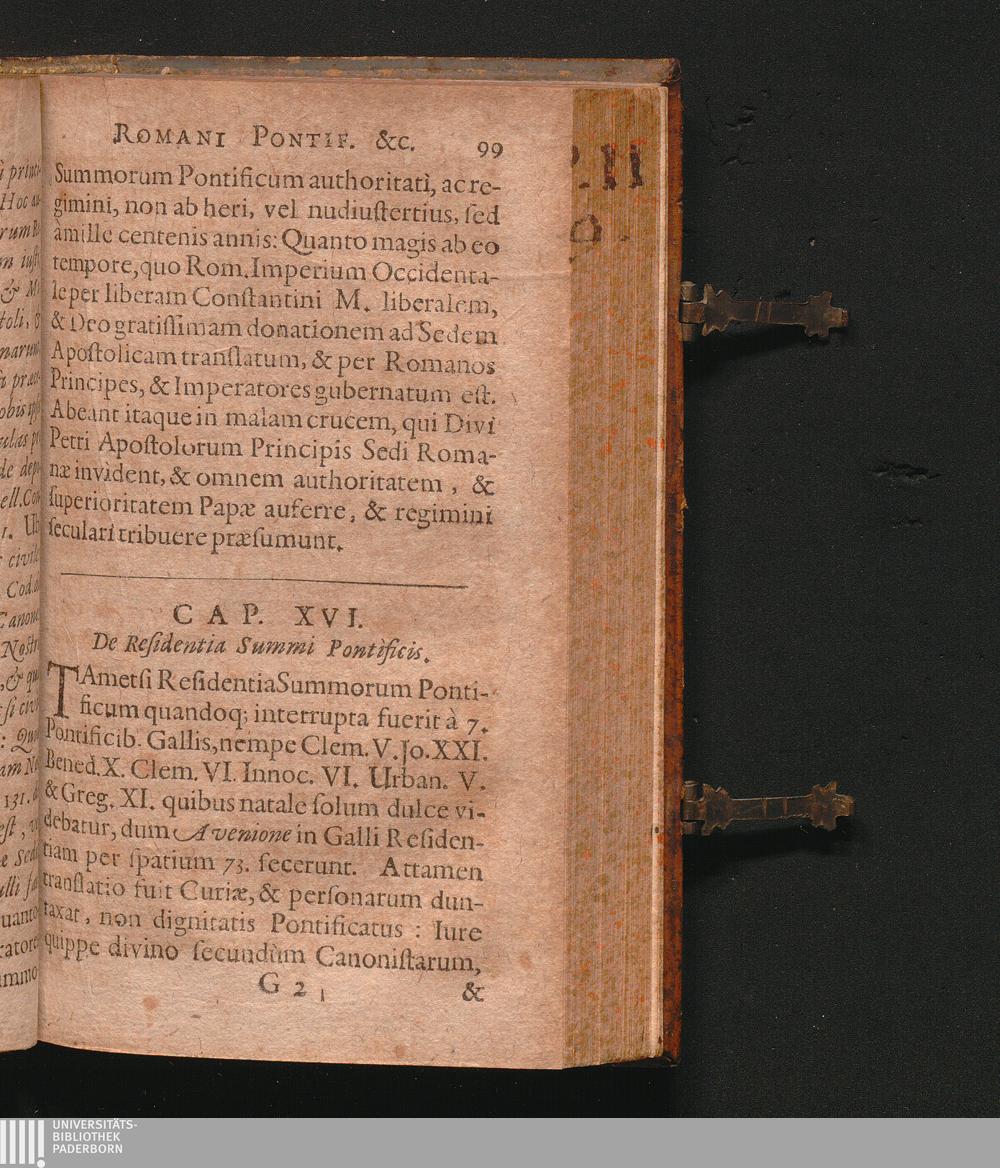 ROMANI PONTIF. &c. 99
Summorum Pontificum authoritati, ac re-
gimini, non ab heri, vel nudiuſtertius, ſed
à mille centenis annis: Quanto magis ab eo
tempore, quo Rom. Imperium Occidenta-
le per liberam Conſtantini M. liberalem,
& Deo gratiſſimam donationem ad Sedem
Apoſtolicam tranſlatum, & per Romanos
Principes, & Imperatores gubernatum eſt.
Abeant itaque in malam crucem, qui Divi
Petri Apoſtolorum Principis Sedi Roma-
næ invident, & omnem authoritatem, &
ſuperioritatem Papæ auferre, & regimini
ſeculari tribuere præſumunt.
CAP. XVI.
De Reſidentia Summi Pontificis.
TAmetſi Reſidentia Summorum Ponti-
ficum quandoq; interrupta fuerit à 7.
Pontificib. Gallis, nempe Clem. V. Jo. XXI.
Bened. X. Clem. VI. Innoc. VI. Urban. V.
& Greg. XI. quibus natale ſolum dulce vi-
debatur, dum Avenione in Galli Reſiden-
tiam per ſpatium 73. fecerunt. Attamen
tranſlatio fuit Curiæ, & perſonarum dun-
taxat, non dignitatis Pontificatus : Iure
quippe divino ſecundùm Canoniſtarum,
G 2 &
UNIVERSITÄTS-
BIBLIOTHEK
PADERBORN